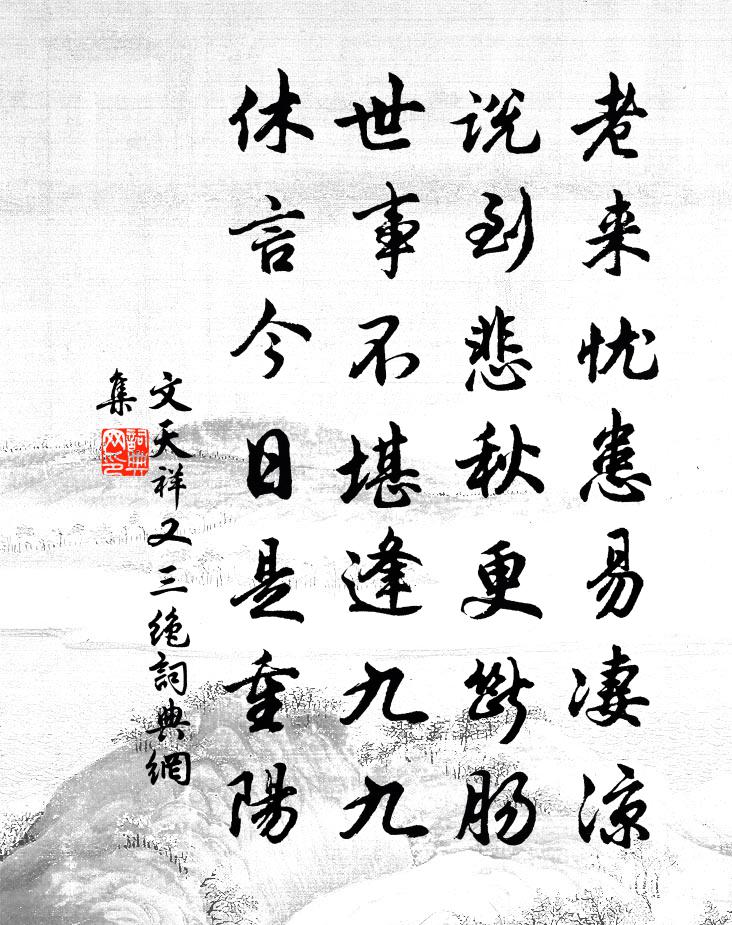 老来忧患易凄凉
说到悲秋更断肠
世事不堪逢九九
休言今日是重陽
文天祥又三绝詞典網
集
詞典
网印